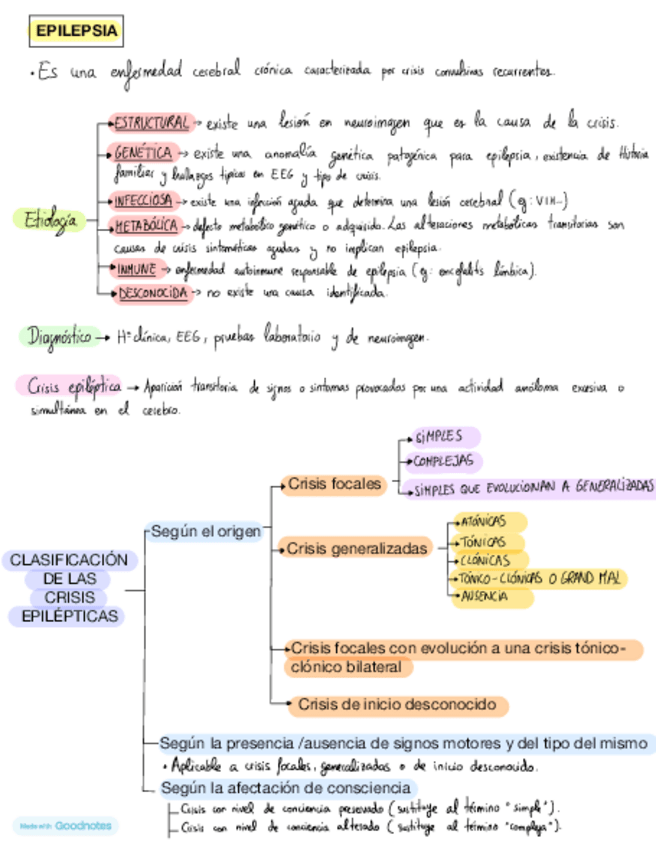 EPILEPSIA
• Es una enfermedad cerebral crónica caracterizada por crisis convulsivas recurrentes.
Etiología
ESTRUCTURAL → existe una lesión en neuroimagen que es la causa de la crisis.
GENÉTICA → existe una anomalía genética patogénica para epilepsia, existencia de Historia
familiar y hallazgos típicos en EEG y tipo de crisis.
INFECCIOSA → existe una infección aguda que determina una lesión cerebral (eg: VIH...)
METABÓLICA → defecto metabólico genético o adquirido. Las alteraciones metabólicas transitorias son
causas de crisis sintomáticas agudas y no implican epilepsia.
INMUNE → enfermedad autoinmune responsable de epilepsia (eg: encefalitis límbica).
DESCONOCIDA → no existe una causa identificada.
Diagnóstico → Hª clínica, EEG, pruebas laboratorio y de neuroimagen.
Crisis epiléptica → Aparición transitoria de signos o síntomas provocados por una actividad anómala excesiva o
simultánea en el cerebro.
CLASIFICACIÓN
DE LAS
CRISIS
EPILÉPTICAS
Según el origen
Crisis focales
SIMPLES
COMPLEJAS
SIMPLES QUE EVOLUCIONAN A GENERALIZADAS
Crisis generalizadas
ATÓNICAS
TÓNICAS
CLÓNICAS
TÓNICO-CLÓNICAS O GRAND MAL
AUSENCIA
Crisis focales con evolución a una crisis tónico-
clónico bilateral
Crisis de inicio desconocido
Según la presencia /ausencia de signos motores y del tipo del mismo
• Aplicable a crisis focales, generalizadas o de inicio desconocido.
Según la afectación de consciencia
Crisis con nivel de conciencia preservado (sustituye al término "simple").
Crisis con nivel de conciencia alterado (sustituye al término "compleja").
Made with Goodnotes